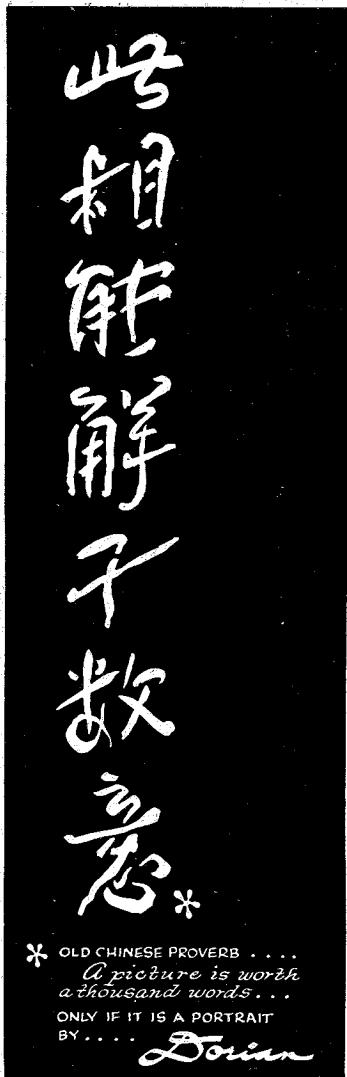 此相能解千数意*
* OLD CHINESE PROVERB ....
A picture is worth
a thousand words...
ONLY IF IT IS A PORTRAIT
BY.... Dorian